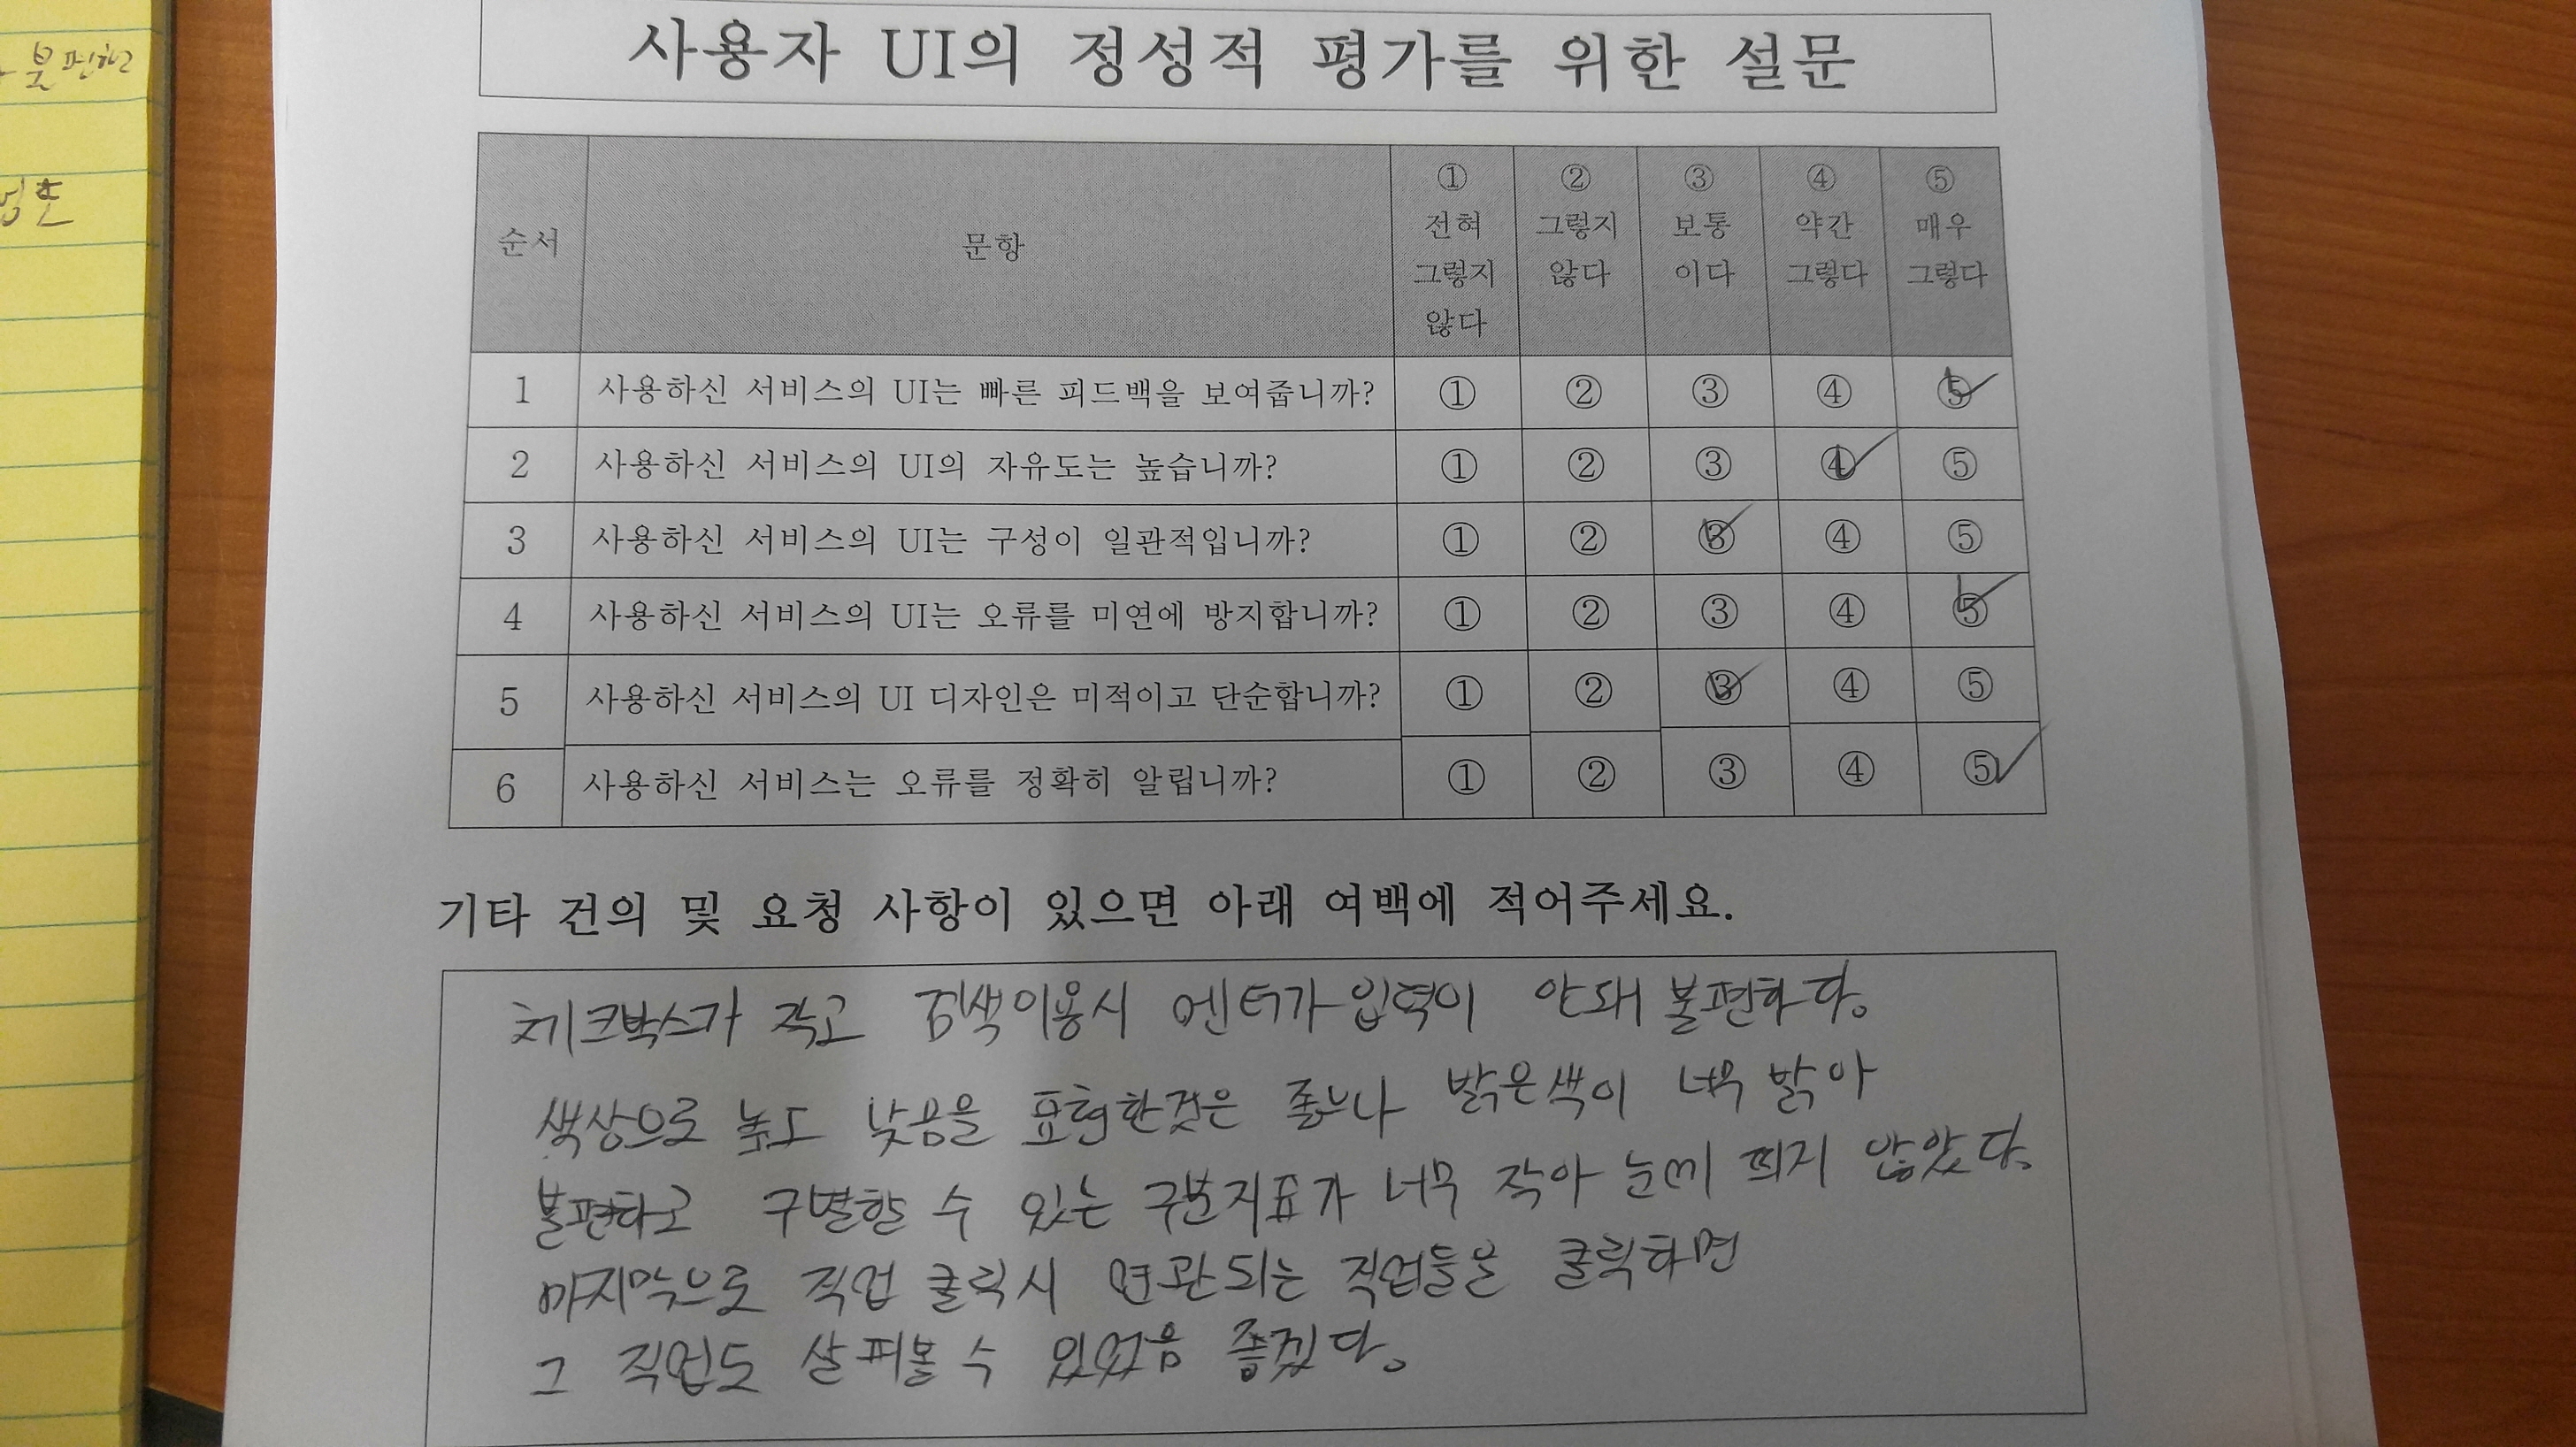 사용자 UI의 정성적 평가를 위한 설문
순서 문항 ① 전혀 그렇지 않다 ② 그렇지 않다 ③ 보통 이다 ④ 약간 그렇다 ⑤ 매우 그렇다
1 사용하신 서비스의 UI는 빠른 피드백을 보여줍니까? ① ② ③ ④ ⑤
2 사용하신 서비스의 UI의 자유도는 높습니까? ① ② ③ ④ ⑤
3 사용하신 서비스의 UI는 구성이 일관적입니까? ① ② ③ ④ ⑤
4 사용하신 서비스의 UI는 오류를 미연에 방지합니까? ① ② ③ ④ ⑤
5 사용하신 서비스의 UI 디자인은 미적이고 단순합니까? ① ② ③ ④ ⑤
6 사용하신 서비스는 오류를 정확히 알립니까? ① ② ③ ④ ⑤
기타 건의 및 요청 사항이 있으면 아래 여백에 적어주세요.
체크박스가 작고 검색이용시 엔터가 입력이 안돼 불편하다.
색상으로 높고 낮음을 표현한것은 좋으나 밝은색이 너무 밝아
불편하고 구별할 수 있는 구분지표가 너무 작아 눈에 띄지 않았다.
마지막으로 직업 클릭시 연관되는 직업들을 클릭하면
그 직업도 살펴볼 수 있었음 좋겠다.
불편하고